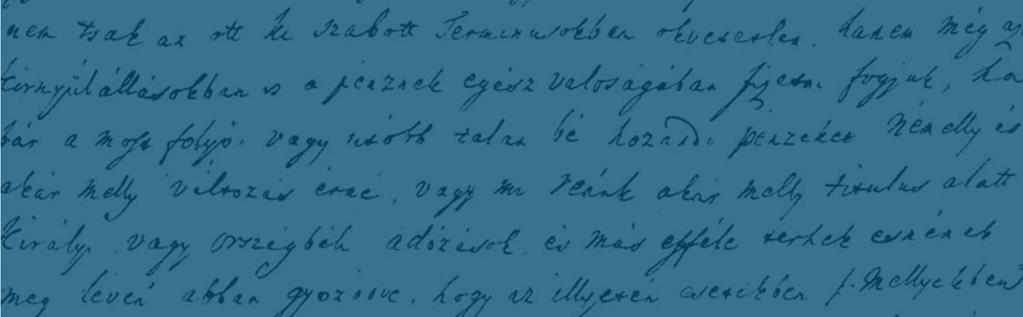 nem tsak az ott ki szabott Terminusokban okvetetlen. hanem még az
környülállásokban is a pénznek egész valoságában fizetni fogjuk, ha
bár a most folyó, vagy utóbb talán bé hozandó pénzeket Némelly és
akár melly változás érné, vagy mi reánk akár melly titulus alatt
Királyi vagy Országbéli adózások és más efféle terhek esnének
meg lévén abban győzödve, hogy az illyetén esetekben